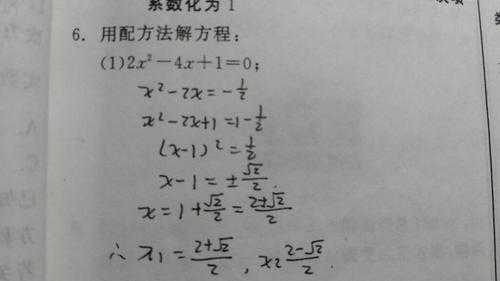 系数化为1
6. 用配方法解方程:
(1)2x²-4x+1=0;
x²-2x=-1/2
x²-2x+1=1-1/2
(x-1)²=1/2
x-1=±√2/2
x=1±√2/2=2±√2/2
∴x₁=2+√2/2,x₂2-√2/2.